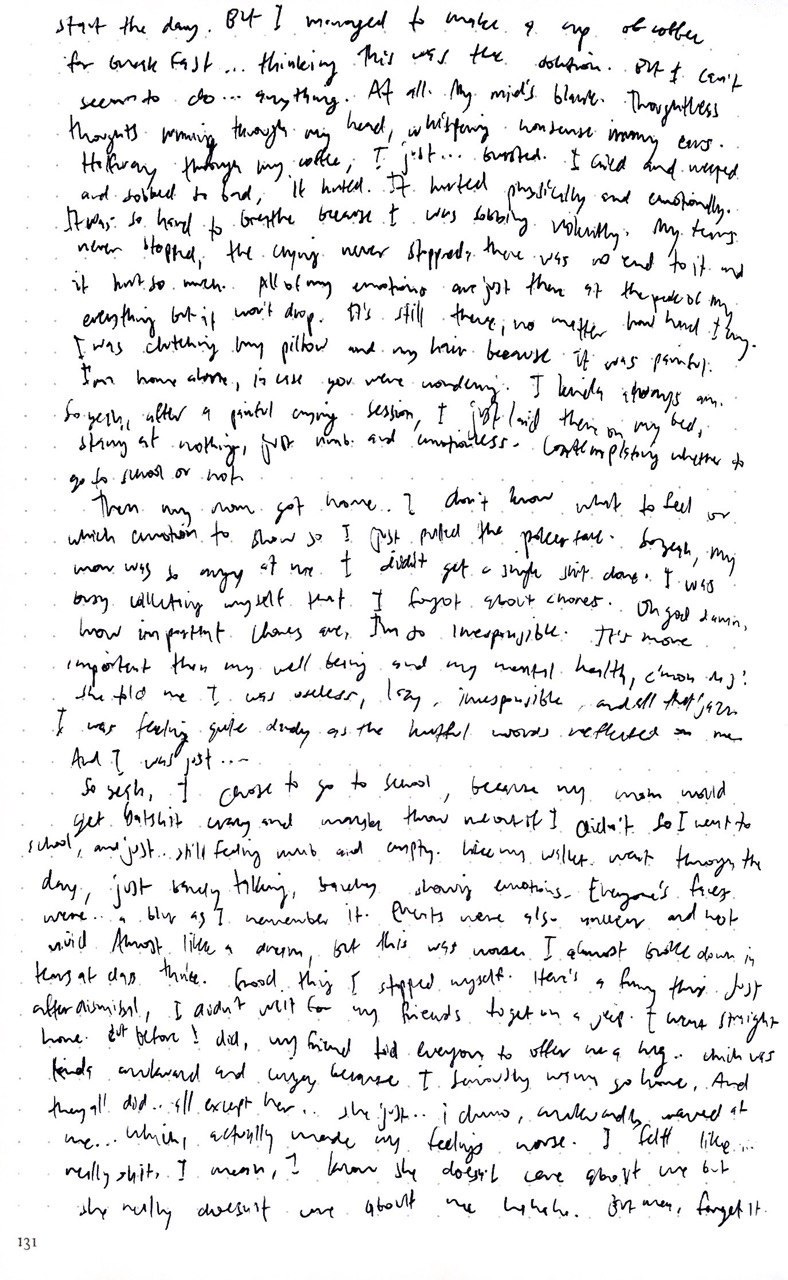 start the day. But I managed to make a cup of coffee
for breakfast... thinking this was the solution. But I can't
seem to do... anything. At all. My mind's blank. Thoughtless
thoughts running through my head, whispering nonsense in my ears.
Halfway through my coffee, I just... bursted. I cried and weeped
and sobbed so bad, it hurted. It hurted physically and emotionally.
It was so hard to breathe because I was sobbing violently. My tears
never stopped, the crying never stopped, there was no end to it and
it hurt so much. All of my emotions are just there at the of my
everything but it won't drop. It's still there, no matter how hard I try.
I was clutching my pillow and my hair because it was painful.
I'm home alone, in case you were wondering. I kinda always am.
So yeah, after a painful crying session, I just laid there on my bed,
staring at nothing, just numb and emotionless. Contemplating whether to
go to school or not.
Then my mom got home.. I don't know what to feel or
which emotion to show so I just pulled the poker face. So yeah, my
mom was so angry at me. I didn't get a single shit done. I was
busy collecting myself that I forgot about chores. Oh god damn,
how important chores are, I'm so irresponsible. It's more
important than my well being and my mental health, c'mon
she told me I was useless, lazy, irresponsible, and all that jazz
I was feeling quite as the hurtful words reflected on me
And I was just....
So yeah, I chose to go to school, because my mom would
get batshit crazy and maybe throw me out if I didn't. So I went to
school, and just.. still feeling numb and empty. Like my wallet. went through the
day, just barely talking, barely showing emotions. Everyone's faces
were.. a blur as I remember it. Events were also unclear and not
vivid. Almost like a dream, but this was worse. I almost broke down in
tears at class thrice. Good thing I stopped myself. Here's a funny thing. Just
after dismissal, I didn't wait for my friends to get on a jeep. I went straight
home. But before I did, my friend told everyone to offer me a hug.. which was
kinda awkward and because I seriously wanna go home. And
they all did.. all except her.. she just.. i dunno, awkwardly waved at
me... which, actually made my feelings worse. I felt like...
really shit. I mean, I know she doesn't care about me but
she really doesn't care about me hahaha. But man, forget it.
131